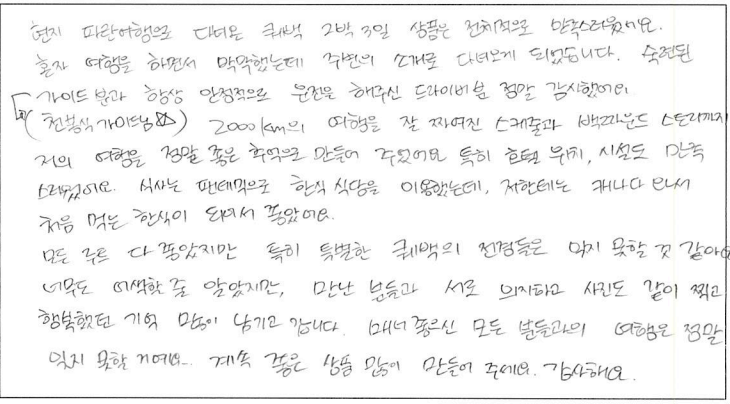 현지 파란여행으로 다녀온 퀘백 2박 3일 상품은 전체적으로 만족스러웠어요.
혼자 여행을 하면서 막막했는데 주변의 소개로 다녀오게 되었습니다. 숙련된
가이드 분과 항상 안정적으로 운전을 해주신 드라이버 분 정말 감사했어요.
(천봉식 가이드님☆) 2000km의 여행을 잘 짜여진 스케줄과 백그라운드 스토리까지
저의 여행을 정말 좋은 추억으로 만들어 주었어요 특히 호텔 위치, 시설도 만족
스러웠어요. 식사는 팬데믹으로 한식 식당을 이용했는데, 저한테는 캐나다 와서
처음 먹는 한식이 되어서 좋았어요.
모든 루트 다 좋았지만 특히 특별한 퀘백의 전경들은 잊지 못할 것 같아요
너무도 어색할 줄 알았지만, 만난 분들과 서로 의지하고 사진도 같이 찍고
행복했던 기억 많이 남기고 갑니다. 매너 좋으신 모든 분들과의 여행은 정말
잊지 못할 거예요. 계속 좋은 상품 많이 만들어 주세요. 감사해요.